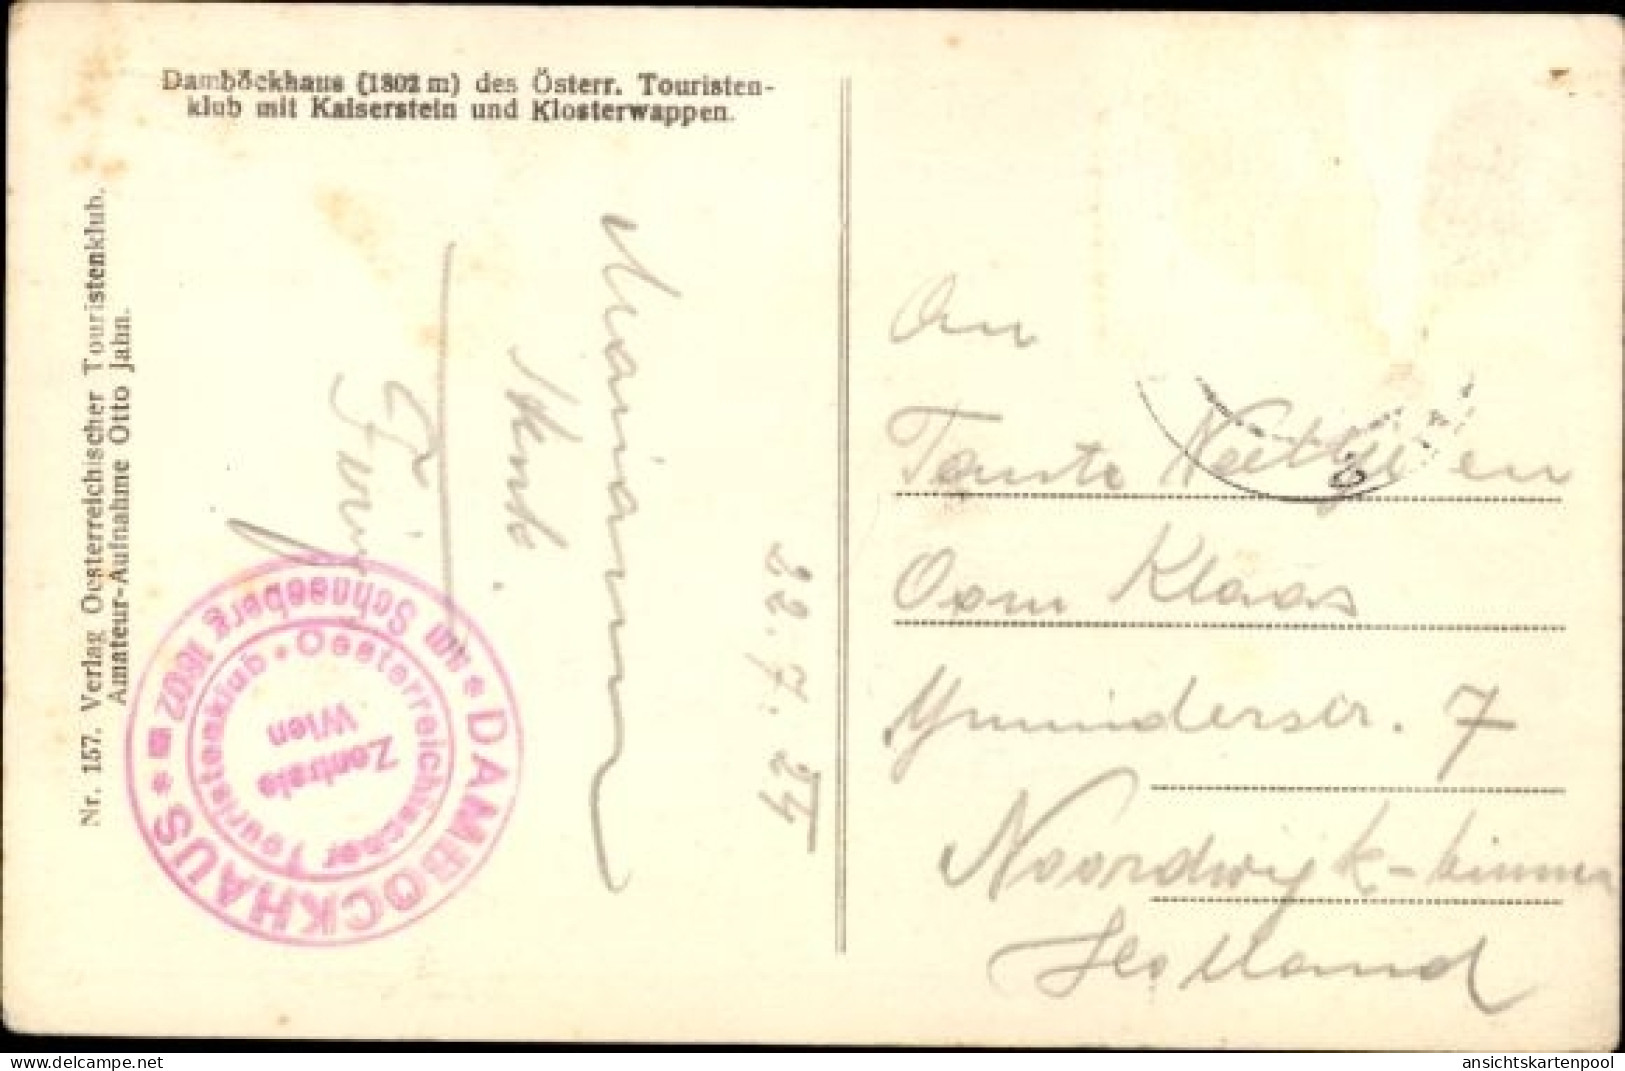 Damböckhaus (1802 m) des Österr. Touristen-
klub mit Kaiserstein und Klosterwappen.
Nr. 157. Verlag Oesterreichischer Touristenklub.
Amateur-Aufnahme Otto Jahn.
Mariann
22. 7. 24
DAMBÖCKHAUS
am Schneeberg 1802 m
Oesterreichischer Touristenklub
Zentrale
Wien
An
Tante Nettje en
Oom Klaas
7
Noordwijk-binnen
Holland
www.delcampe.net
ansichtskartenpool